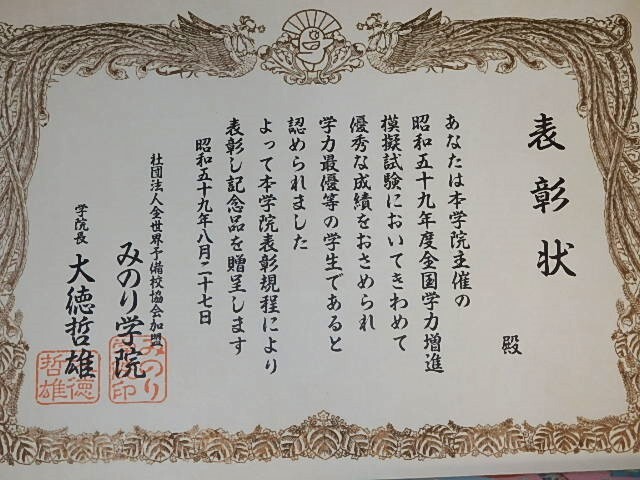 表彰状
殿
あなたは本学院主催の
昭和五十九年度全国学力増進
模擬試験においてきわめて
優秀な成績をおさめられ
学力最優等の学生であると
認められました
よって本学院表彰規程により
表彰し記念品を贈呈します
昭和五十九年八月二十七日
社団法人全世界予備校協会加盟
みのり学院
学院長 大徳哲雄